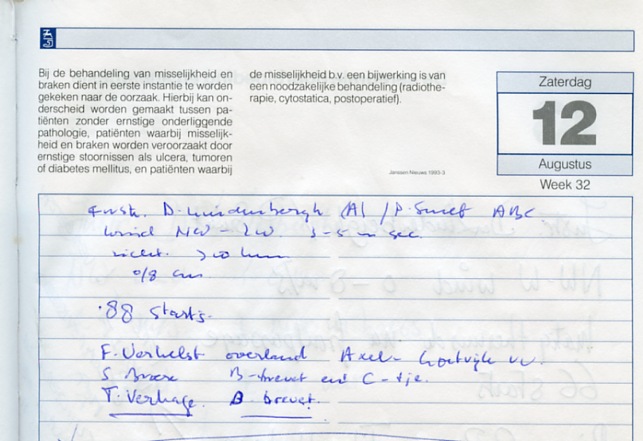 Bij de behandeling van misselijkheid en
braken dient in eerste instantie te worden
gekeken naar de oorzaak. Hierbij kan on-
derscheid worden gemaakt tussen pa-
tiënten zonder ernstige onderliggende
pathologie, patiënten waarbij misselijk-
heid en braken worden veroorzaakt door
ernstige stoornissen als ulcera, tumoren
of diabetes mellitus, en patiënten waarbij
de misselijkheid b.v. een bijwerking is van
een noodzakelijke behandeling (radiothe-
rapie, cytostatica, postoperatief).
Janssen Nieuws 1993-3
Zaterdag
12
Augustus
Week 32
D. (A) / P. Smet ABC
wind NW - ZW. 3-5 m sec.
zicht. >10 km
0/8
88 starts.
F. Verhelst overland Axel -
S B-brevet en C-tje.
T. Verhage. B brevet.